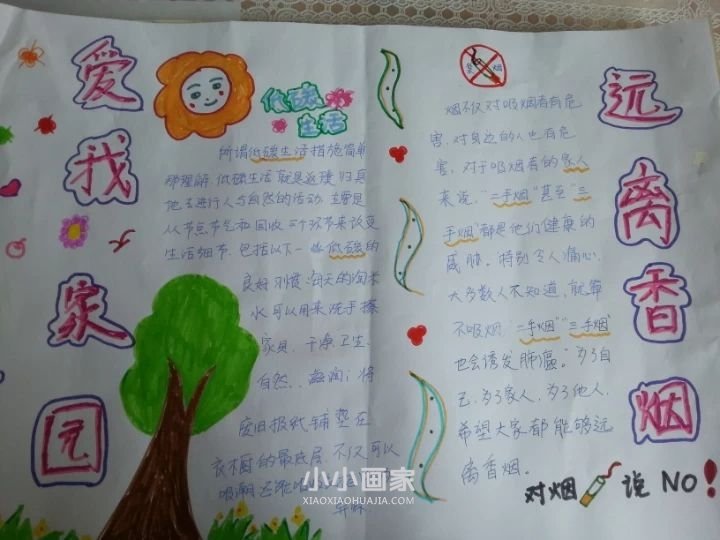 爱我家园
低碳
生活
所谓低碳生活措施简单
那理解,低碳生活就是返璞归真
地去进行人与自然的活动,主要是
从节点节气和回收三个环节来改变
生活细节,包括以下一些低碳的
良好习惯:淘天的淘米
水可以用来洗手擦
家具,干净卫生,
自然,滋润;将
废旧报纸铺垫在
衣橱的最底层,不仅可以
吸潮
禁烟
烟不仅对吸烟者有危
害,对身边的人也有危
害,对于吸烟者的家人
来说,"二手烟"甚至"三
手烟"都是他们健康的
威胁。特别令人痛心,
大多数人不知道,就算
不吸烟,"二手烟""三手烟"
也会诱发肺癌。为了自
己,为了家人,为了他人,
希望大家都能够远
离香烟。
远离香烟
对烟说NO!
小小画家
XIAOXIAOHUAJIA.COM